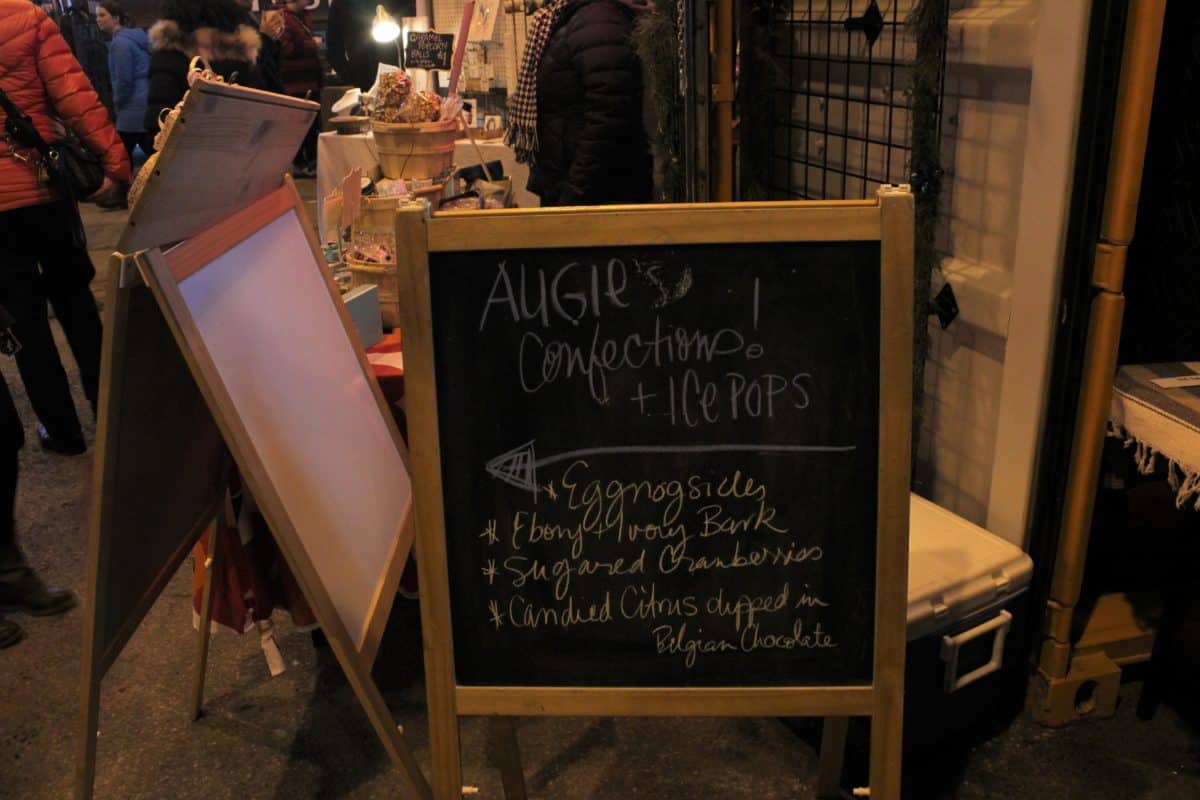 CARAMEL
POPCORN
BALLS
AUGIE's
Confections!
+ ICE POPS
* Eggnogsicles
* Ebony + Ivory Bark
* Sugared Cranberries
* Candied Citrus dipped in
Belgian Chocolate